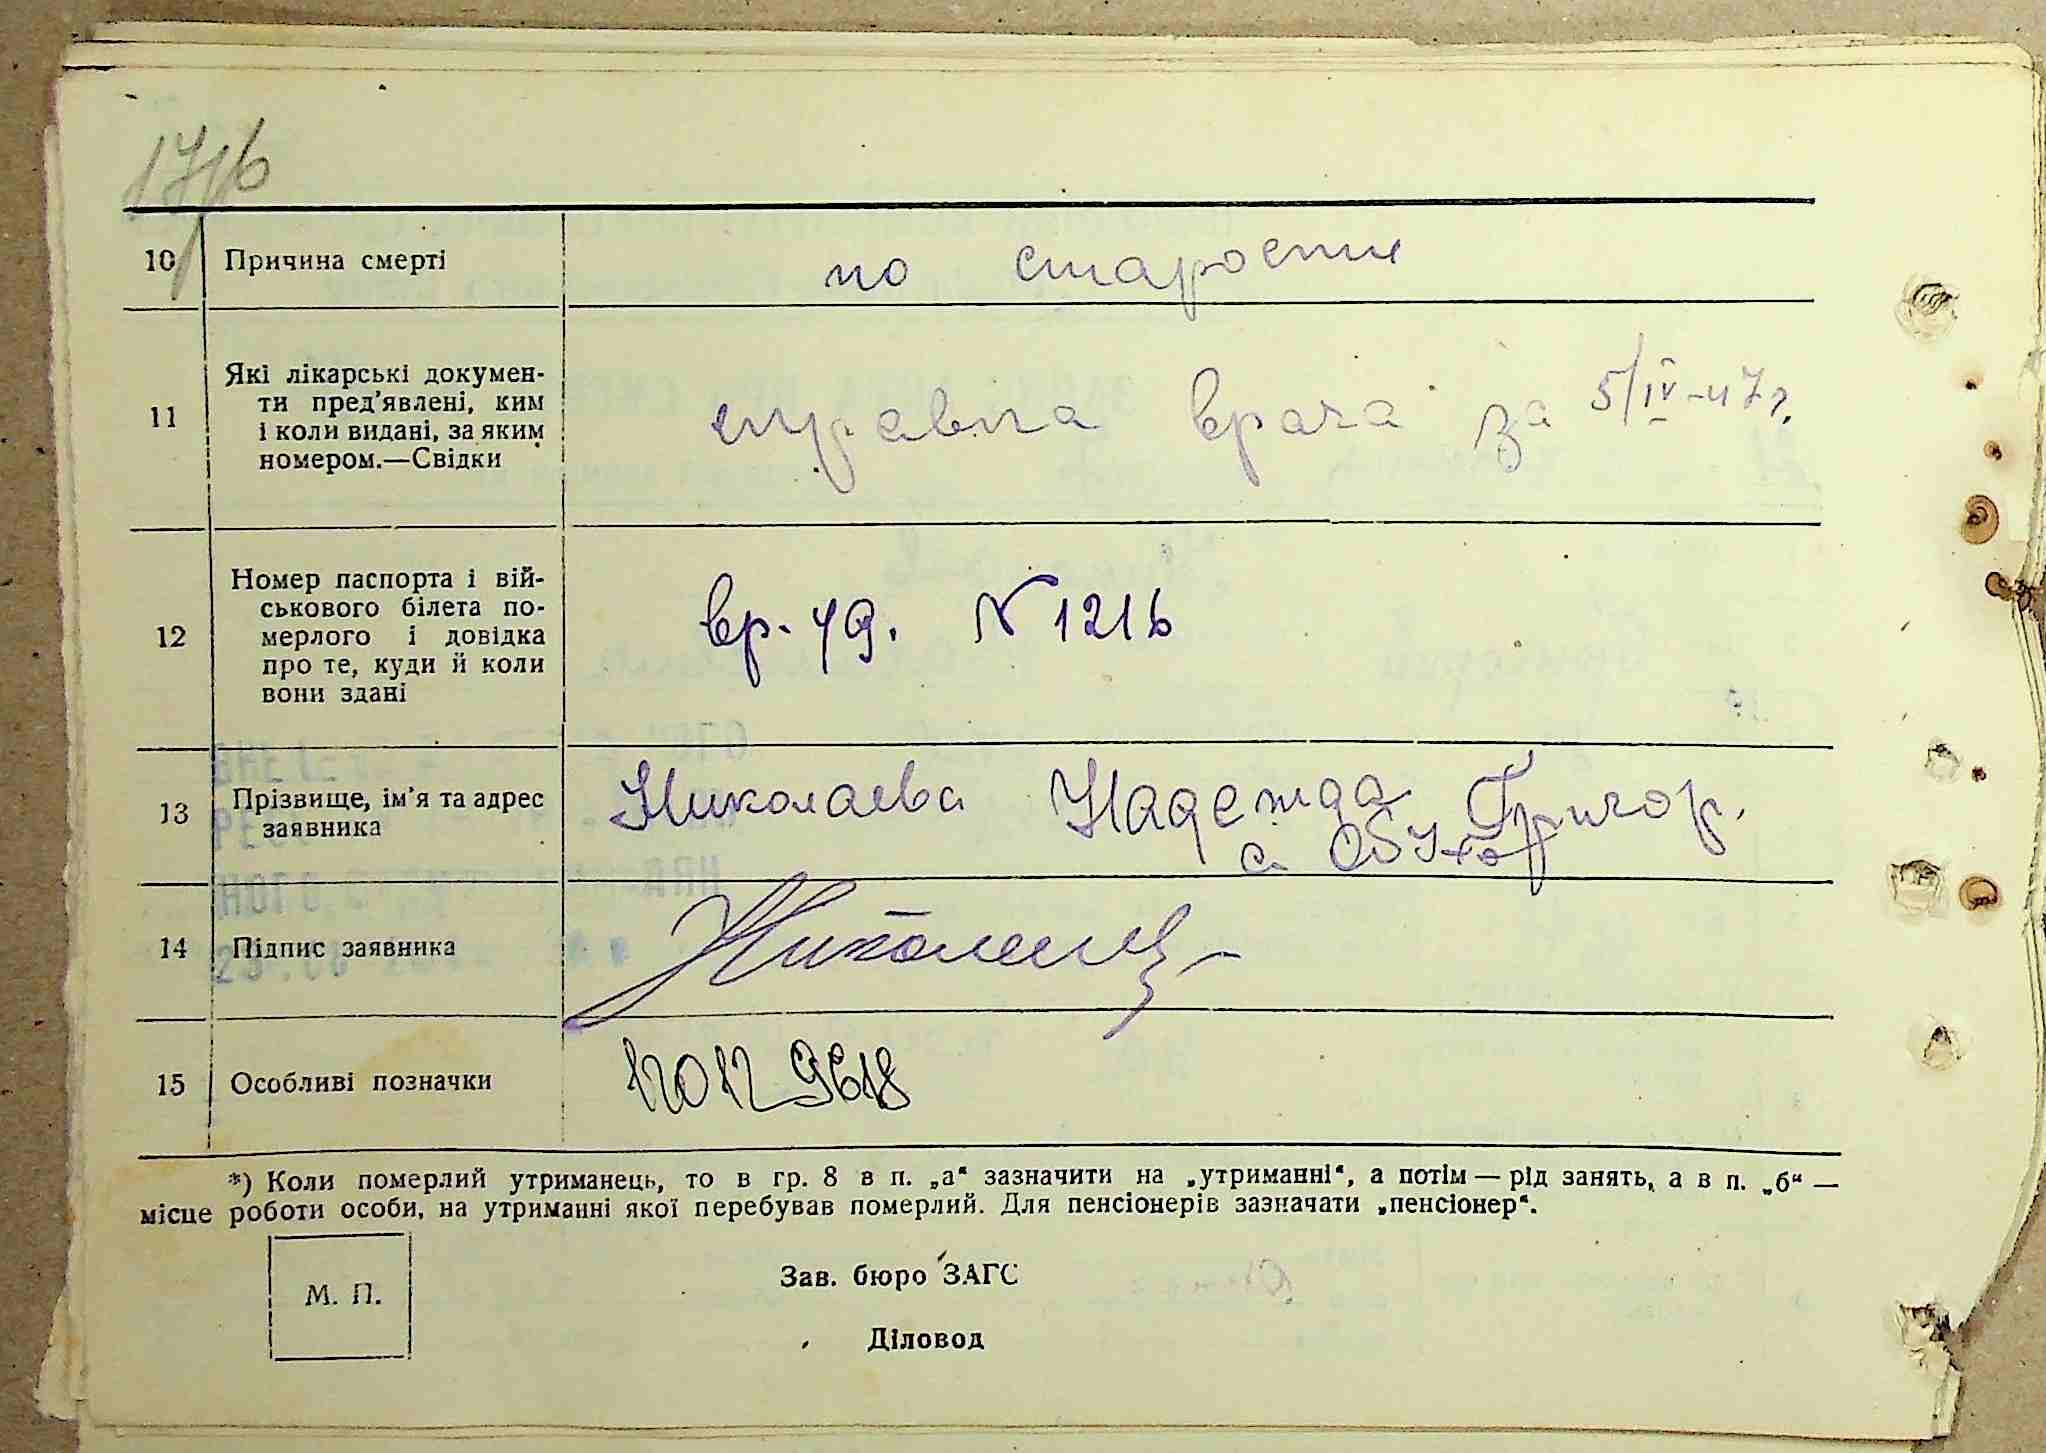 1716
10 Причина смерті по старости
11 Які лікарські документи пред'явлені, ким і коли видані, за яким номером.—Свідки справка врача за 5/IV-47г.
12 Номер паспорта і військового білета померлого і довідка про те, куди й коли вони здані вр. уд. N 1216
13 Прізвище, ім'я та адрес заявника Николаева Надежда Григор.
с.
14 Підпис заявника
15 Особливі позначки
*) Коли померлий утриманець, то в гр. 8 в п. „а“ зазначити на „утриманні“, а потім — рід занять, а в п. „б“ —
місце роботи особи, на утриманні якої перебував померлий. Для пенсіонерів зазначати „пенсіонер“.
М. П.
Зав. бюро ЗАГС
Діловод